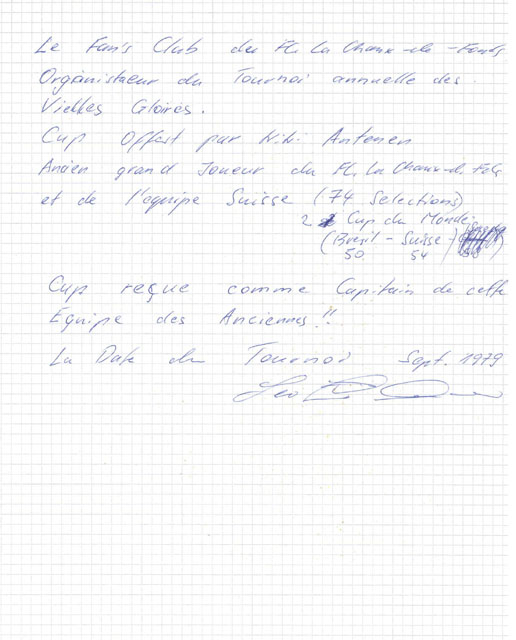 Le Fan's Club du Fc La Chaux-de-Fonds
Organistaeur du Tournoi annuelle des
Vielles Gloires.
Cup Offert par Kiki Antenen
Ancien grand Joueur du Fc La Chaux-d. Fds
et de l'equipe Suisse (74 Selections)
2 Cup du Monde
(Bresil - Suisse -)
50. 54
Cup reçue comme Capitain de cette
Equipe des Anciennes !!
La Date du Tournoi Sept. 1979